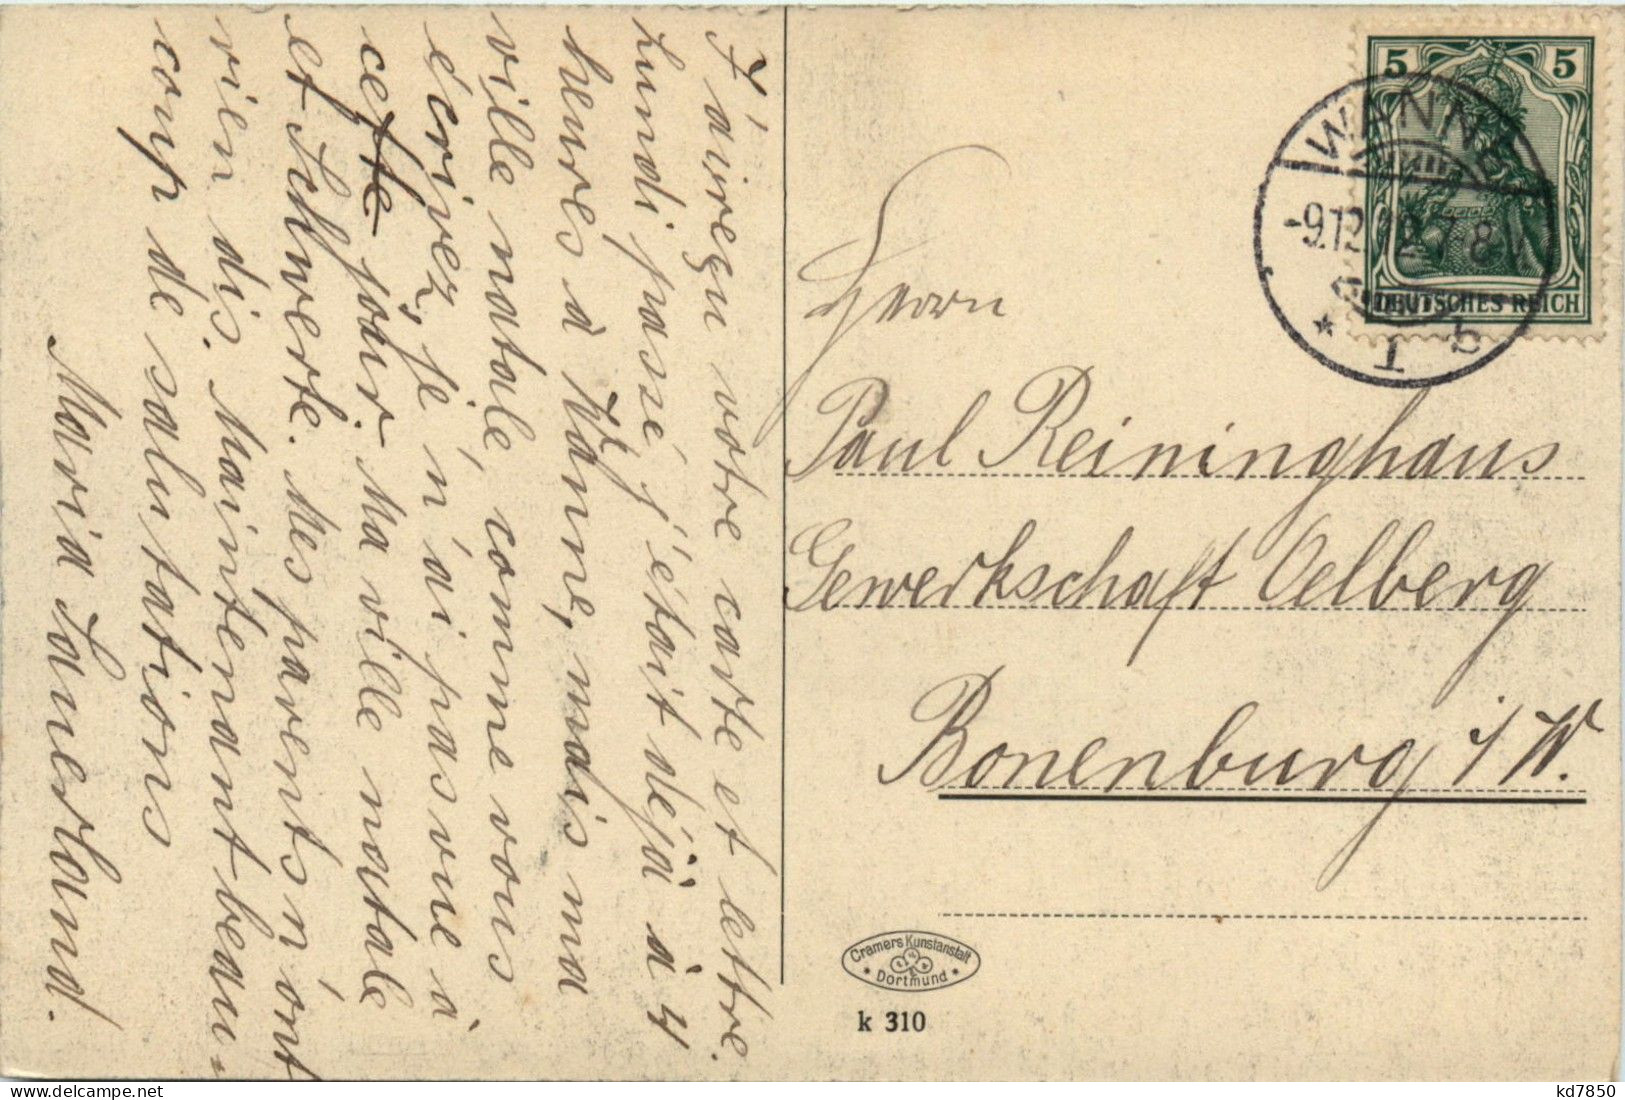 J'ai reçu votre carte et lettre.
Lundi passé j'était déjà à 4
heures à Wanne, mais ma
ville natale, comme vous
écrivez, je n'ai pas vue à
cette jour. Ma ville natale
et Schwerte. Mes parents n'ont
rien dis. Maintenant beau-
coup de salutations
Maria Sauerland.
5 5
DEUTSCHES REICH
WANNE
-9.12. 7-8
* 1 b
Herrn
Paul Reininghaus
Gewerkschaft Oelberg
Bonenburg i/W.
Cramers Kunstanstalt
* Dortmund *
k 310
kd7850